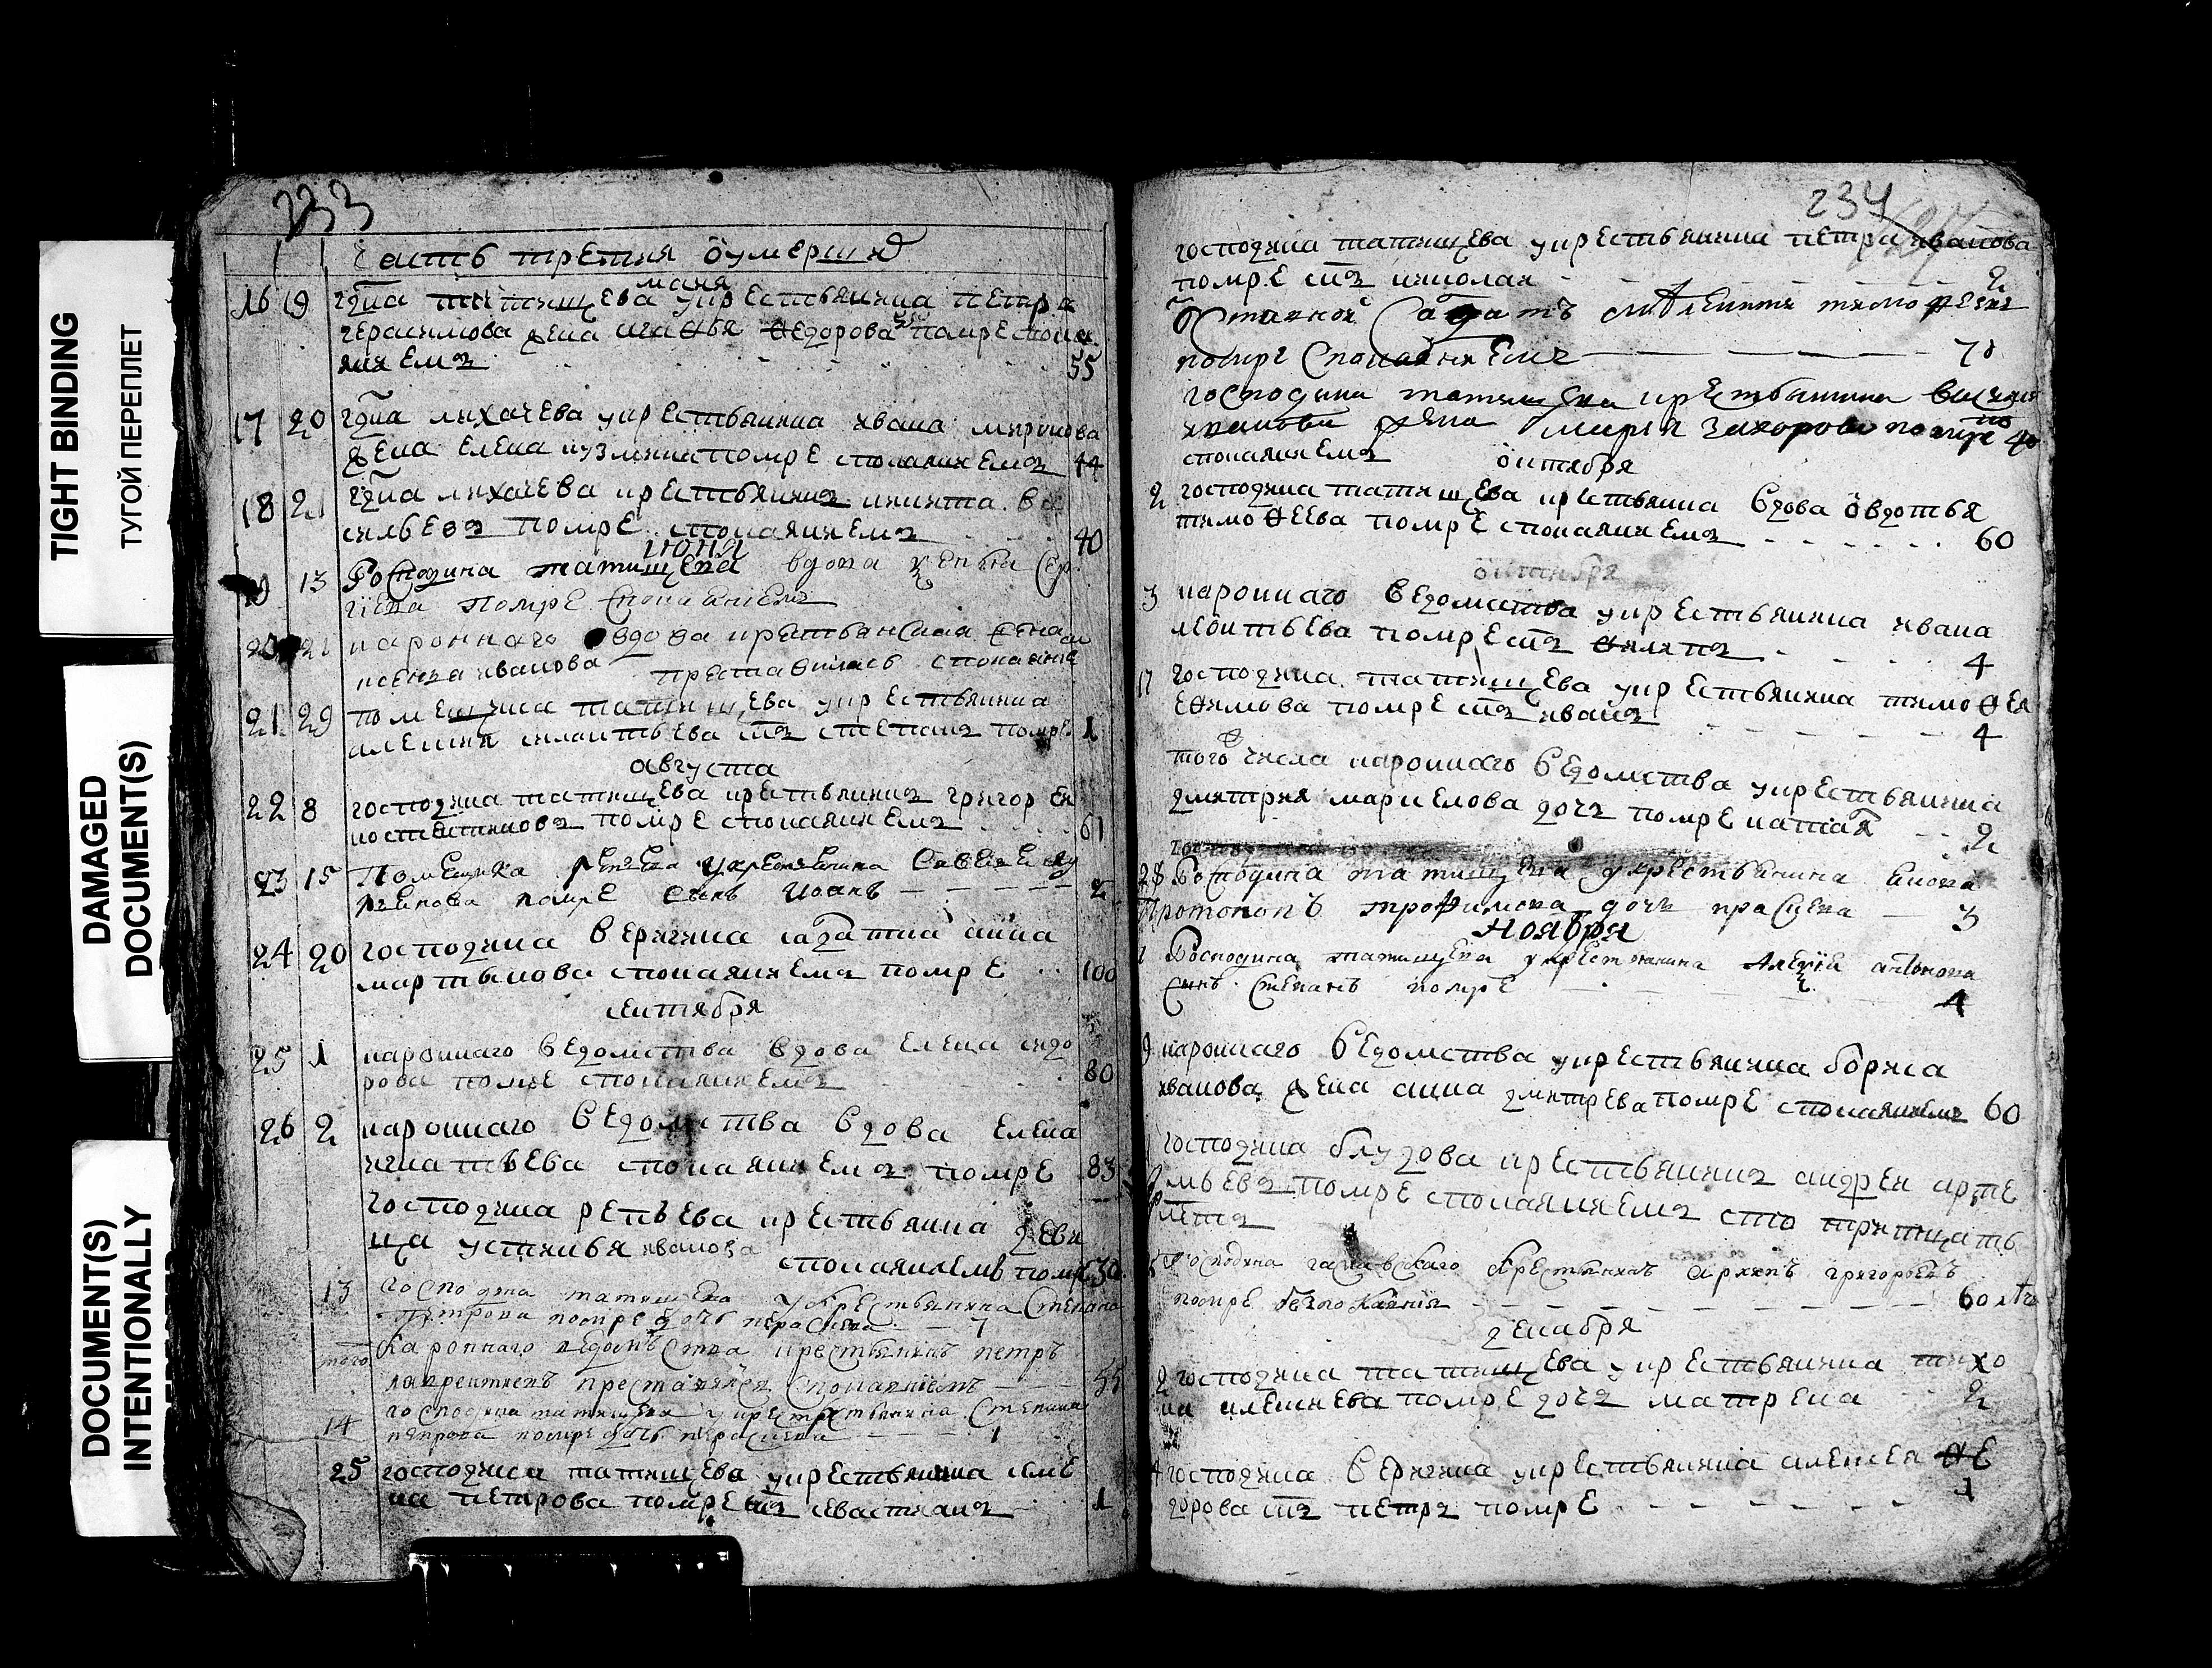 TIGHT BINDING
ТУГОЙ ПЕРЕПЛЕТ
DAMAGED
DOCUMENT(S)
DOCUMENT(S)
INTENTIONALLY
233
часть третия ѻумерши
маия
16 19 гдна татищева у крестьянина петра
герасимова жена агафья федорова помре спока
яниемъ 55
17 20 гдна лихачева у крестьянина ивана миронова
жена елена кузмина помре с покаяниемъ 44
18 21 гдна лихачева крестьянинъ никита ва
сильевъ помре с покаяниемъ 40
июня
19 13 Господина татищева вдова Сер
гиева помре с покаяниемъ
21 кароннаго вдова крестьянская
иванова преставилась с покаяние
21 29 помещика татищева у крестьянина
алексия силантьева снъ степанъ помре 1
августа
22 8 господина татищева крестьянинъ григореи
костентиновъ помре с покаяниемъ 61
23 15 Помещика репьева у крестьянина
помре сынъ Иоанъ 2
24 20 господина веригина салдатка анна
мартынова с покаяниемъ помре 100
сентября
25 1 кароннаго ведомства вдова елена сидо
рова помре с покаяниемъ 80
26 2 кароннаго ведомства вдова елена
игнатьева с покаяниемъ помре 83
господина репьева крестьянка деви
ца устинья иванова
с покаяниемъ помре 30
13 господина татищева у крестьянина степана
петрова помре дочь параскева 7
того кароннаго ведомъства крестьянинъ петръ
лаврентиевъ преставися с покаяниемъ 55
14 господина татищева у крестьянина степана
петрова помре дочь параскева 1
25 господина татищева у крестьянина
на петрова помре снъ севастианъ 1
234
господина татищева у крестьянина петра иванова
помре снъ николаи 2
Отставной Салдатъ тимофеевъ
помре с покаяниемъ 70
господина татищева крестьянина
иванова жена марья захорова помре 40
с покаяниемъ
октября
2 господина татищева крестьянка вдова ѻвдотья
тимофеева помре с покаяниемъ 60
октября
3 кароннаго ведомства у крестьянина ивана
леонтьева помре снъ филипъ 4
17 господина татищева у крестьянина тимофея
ефимова помре снъ иванъ 4
того числа кароннаго ведомства у крестьянина
дмитрия маркелова дочь помре наталя 2
28 Господина татищева у крестьянина
трофимова дочь праскева 3
Ноября
1 Господина татищева у крестьянина Алексия антонова
сынъ Степанъ помре 4
9 кароннаго ведомства у крестьянина бориса
иванова жена анна дмитрева помре с покаяниемъ 60
господина блудова крестьянинъ андреи арте
мьевъ помре с покаяниемъ сто тритцать
летъ
господина крестьянинъ архипъ григорьевъ
помре без покаяния 60 летъ
декабря
2 господина татищева у крестьянина тихо
на алексеева помре дочь матрена 2
4 господина веригина у крестьянина алексея фе
дорова снъ петръ помре 1